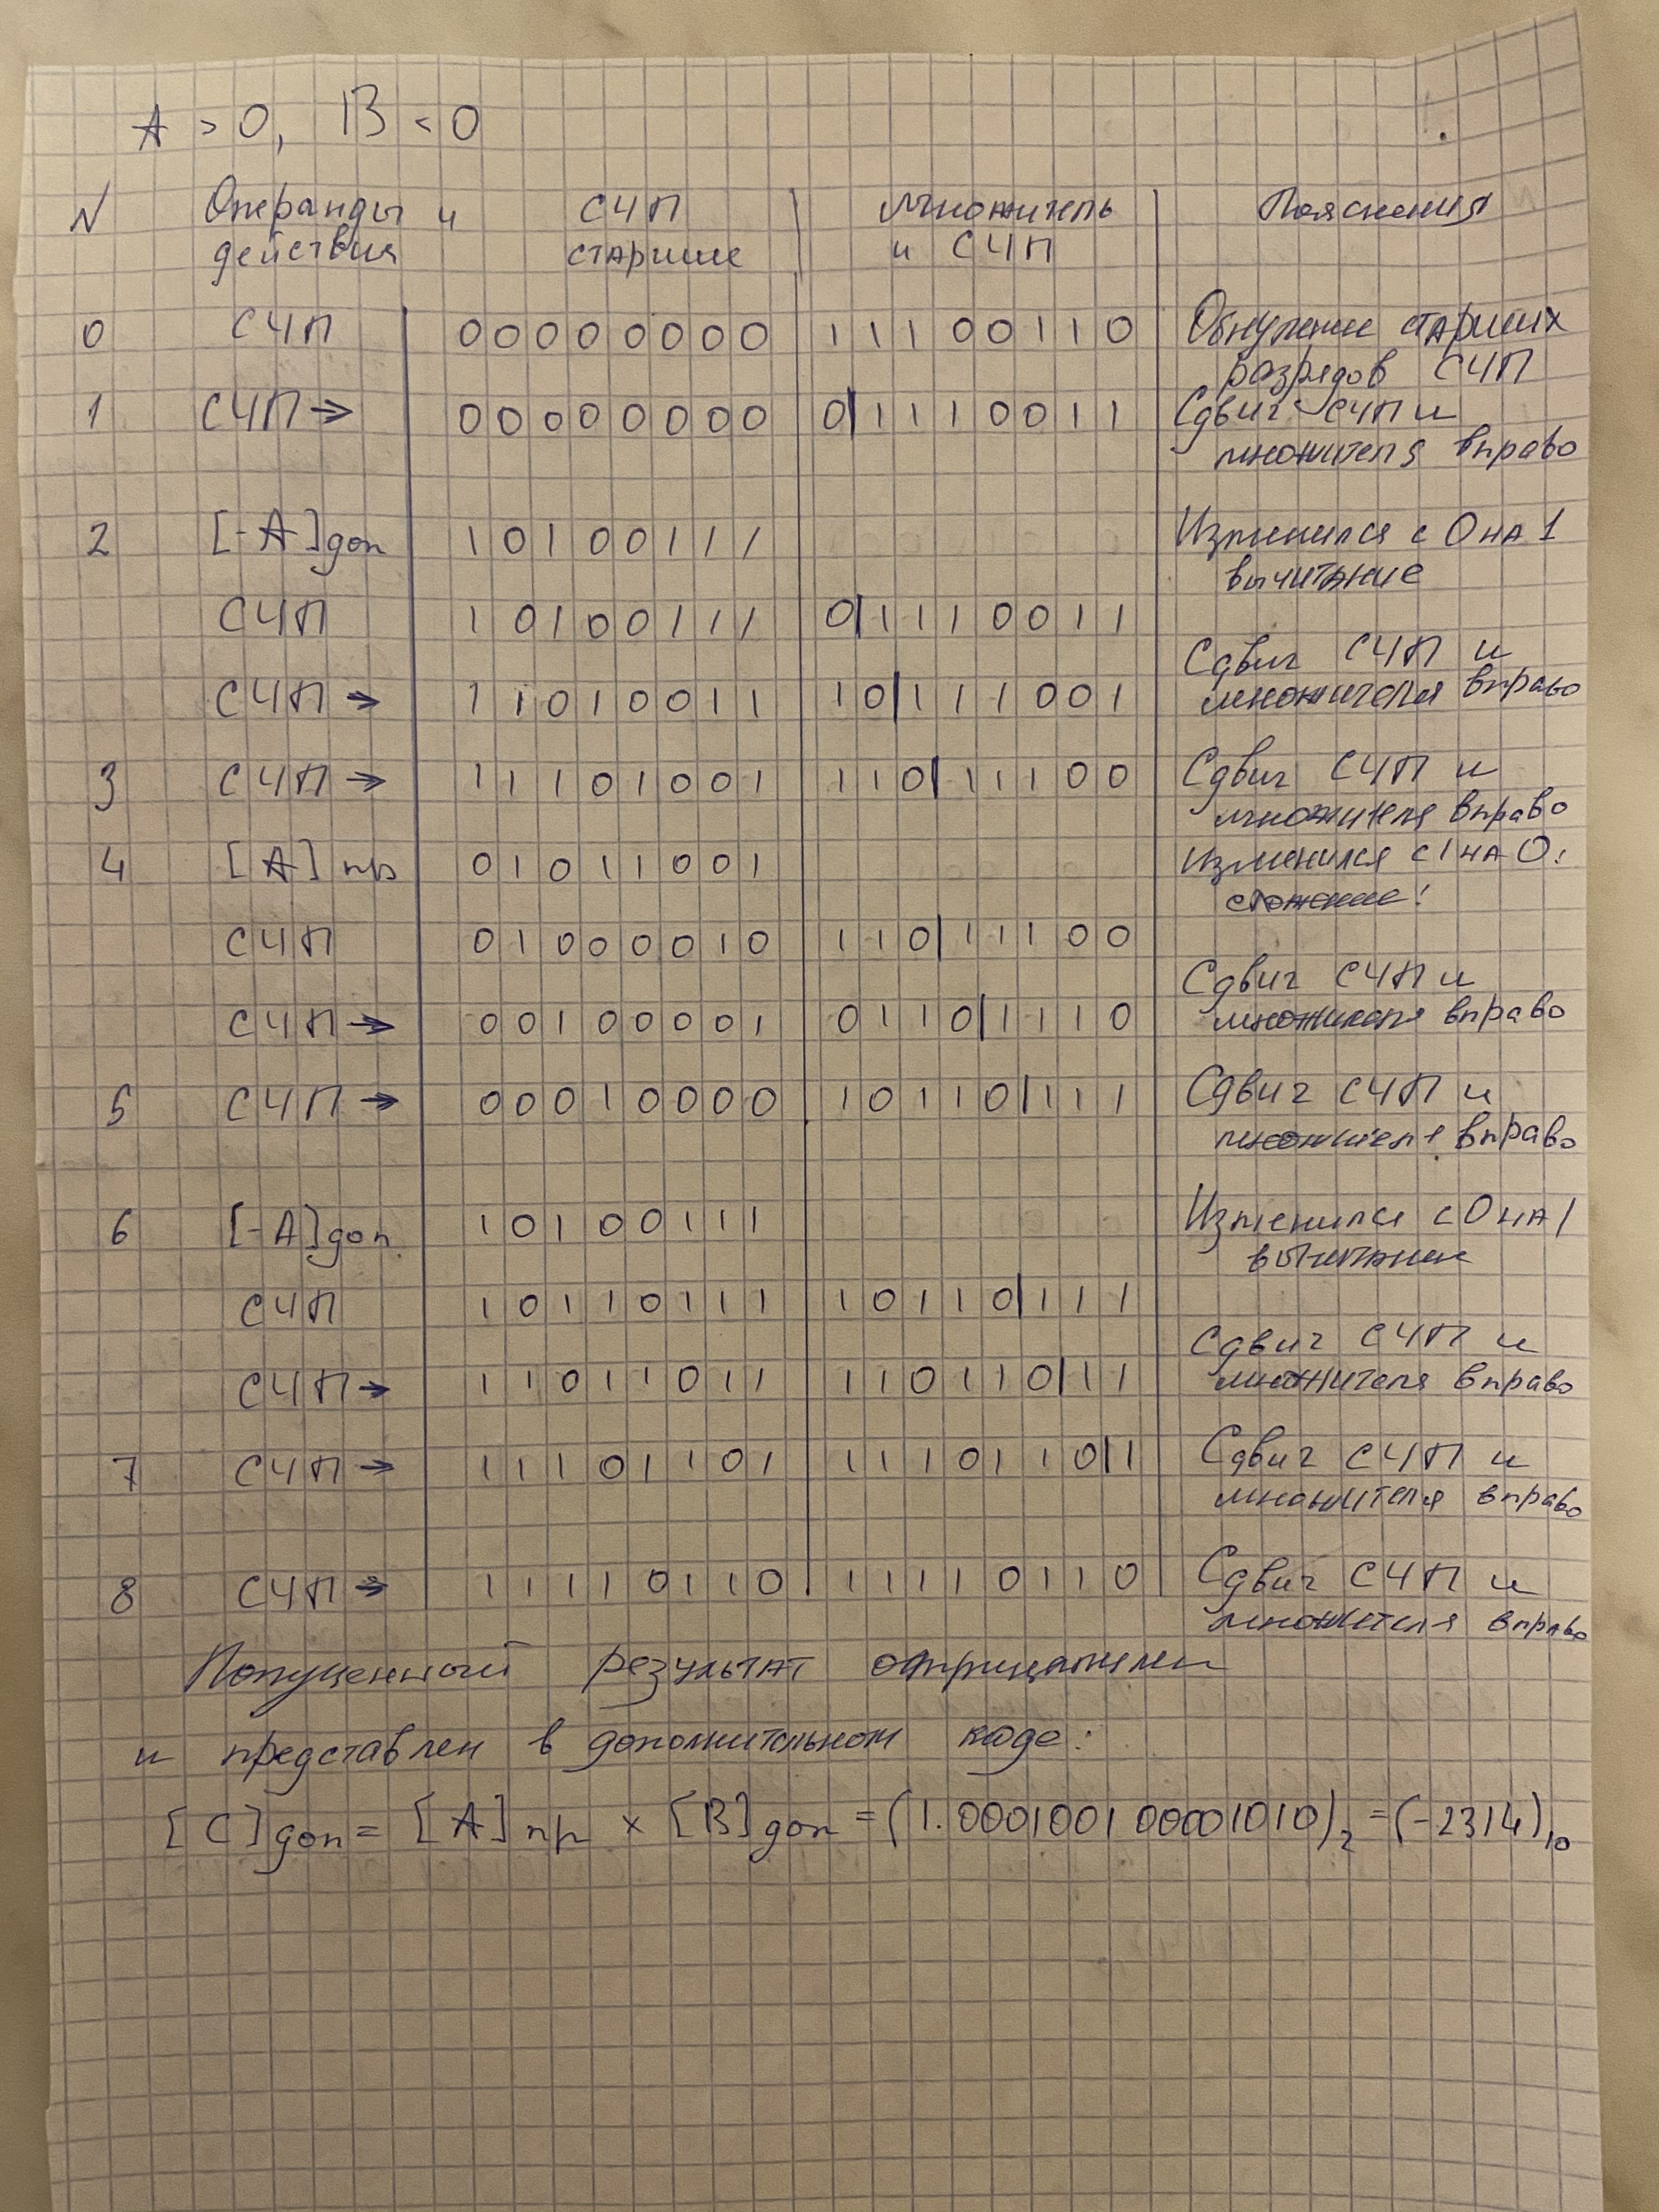 A > 0, B < 0
N Операнды и действия СЧП старшие Множитель и СЧП Пояснения
0 СЧП 00000000 11100110 Обнуление старших разрядов СЧП
1 СЧП → 00000000 0|1110011 Сдвиг СЧП и множителя вправо
2 [-A]доп 10100111 Изменился с 0 на 1 вычитание
СЧП 10100111 0|1110011
СЧП → 11010011 10|111001 Сдвиг СЧП и множителя вправо
3 СЧП → 11101001 110|11100 Сдвиг СЧП и множителя вправо
4 [A]пр 01011001 Изменился с 1 на 0: сложение!
СЧП 01000010 110|11100
СЧП → 00100001 0110|1110 Сдвиг СЧП и множителя вправо
5 СЧП → 00010000 10110|111 Сдвиг СЧП и множителя вправо
6 [-A]доп. 10100111 Изменился с 0 на 1 вычитание
СЧП 10110111 10110|111
СЧП → 11011011 110110|11 Сдвиг СЧП и множителя вправо
7 СЧП → 11101101 1110110|1 Сдвиг СЧП и множителя вправо
8 СЧП → 11110110 11110110 Сдвиг СЧП и множителя вправо
Полученный результат отрицателен
и представлен в дополнительном коде:
[C]доп = [A]пр × [B]доп = (1.000100100001010)₂ = (-2314)₁₀